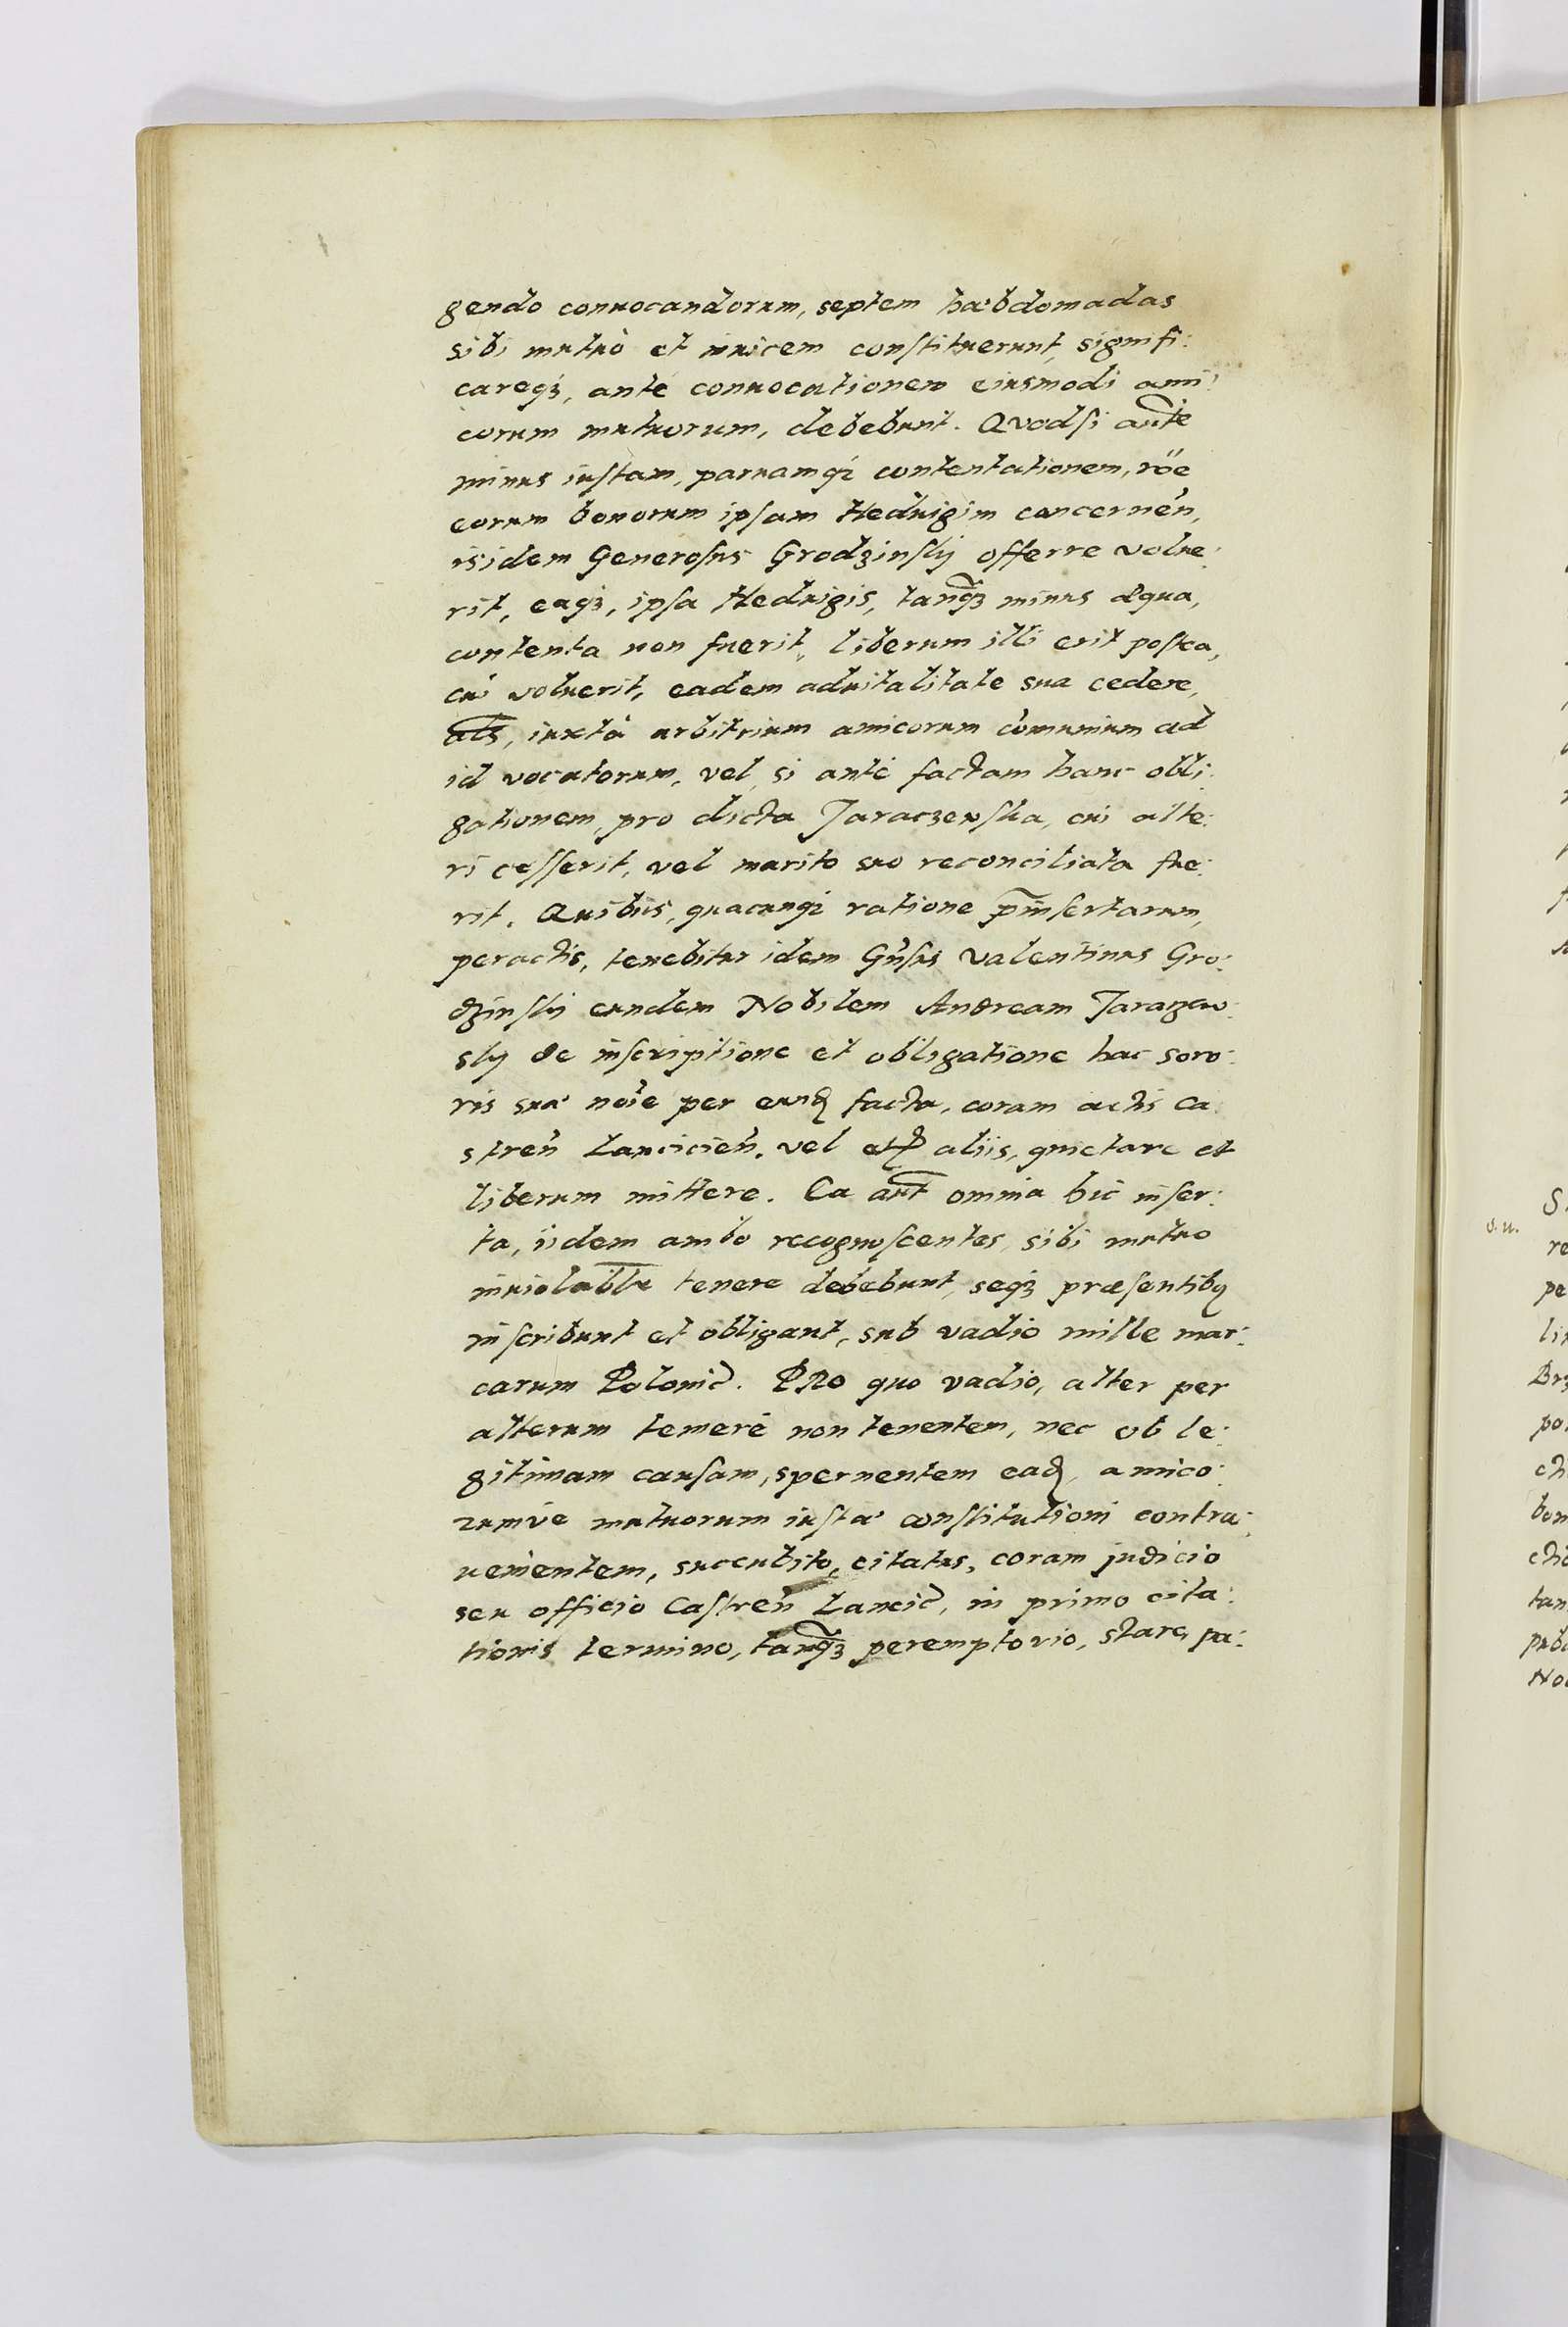 gendo conuocandorum, septem hæbdomadas
sibi mutuò et inuicem constituerunt, signifi:
careq3, antè conuocationem eiusmodi ami:
corum mutuorum, debebunt. Quodsi aut̃e
minus iustam, paruamq3 contentationem, rõe
eorum bonorum ipsam Heduigim concerneñ,
isidem Generosus Grodzinsky offerre volue:
rit, eaq3, ipsa Heduigis, tanq̃3 minus æqua,
contenta non fuerit, liberum illi erit postea,
cui voluerit, eadem aduitalitate sua cedere,
al̃s, iuxtà arbitrium amicorum com̃unium ad
id vocatorum, vel, si antè factam hanc obli:
gationem, pro dicta Jaraczewska, cui alte:
ri cesserit, vel marito suo reconciliata fue:
rit. Quibus, quacunq3 ratione p̃insertarum,
peractis, tenebitur idem Gñsus Valentinus Gro:
dzinsky eundem Nobilem Andream Jaraczew:
sky de inscriptione et obligatione hac soro:
ris suæ noĩe per eund facta, coram actis Ca
streñ Lancicieñ. vel aliis, quietare et
liberum mittere. Ea aut̃ omnia hic inser:
ta, iidem ambo recognoscentes, sibi mutuo
inuiolabl̃r tenere debebunt, seq3 præsentibq
inscribunt et obligant, sub vadio mille mar:
carum Polonic̃. PRo quo vadio, alter per
alterum temerè non tenentem, nec ob le:
gitimam causam, spernentem ead, amico:
rumvè mutuorum iustæ constitutioni contra:
uenientem, succubito, citatus, coram judicio
seu officio Castreñ Lancic̃, in primo cita:
tionis termino, tanq̃3 peremptorio, stare, pa:
S
v. u.
re
pe
li
Brz
po
ch
bon
ctio
tan
pub
No